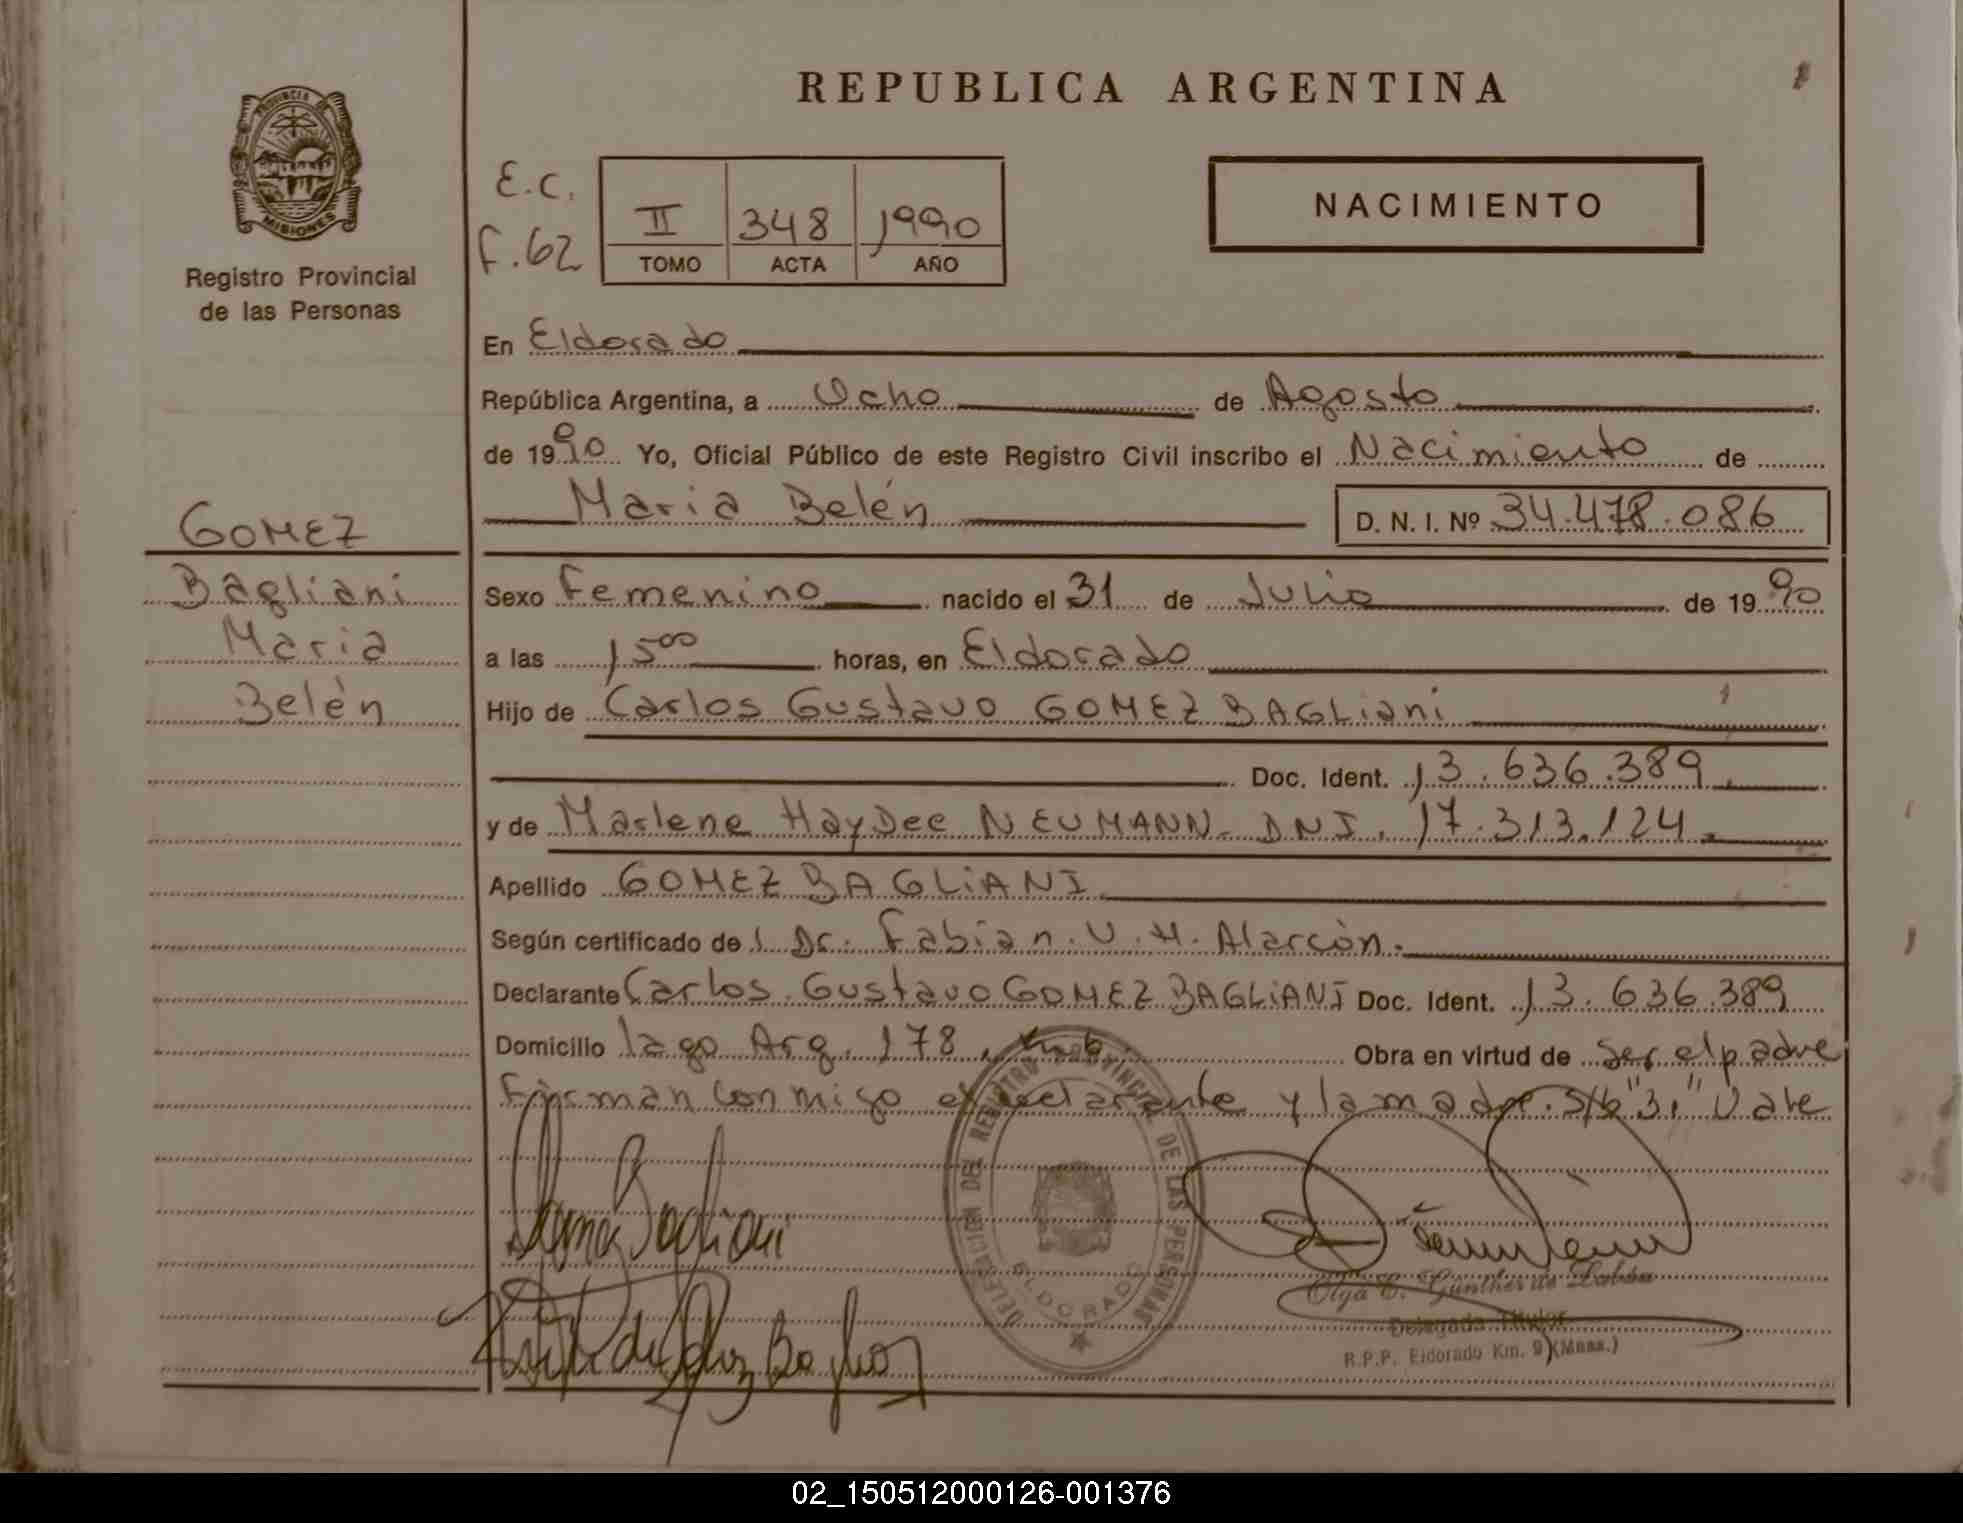 REPUBLICA ARGENTINA
PROVINCIA DE
MISIONES
Registro Provincial
de las Personas
E.C.
F.62
II 348 1990
TOMO ACTA AÑO
NACIMIENTO
En Eldorado
República Argentina, a Ocho de Agosto
de 1990 Yo, Oficial Público de este Registro Civil inscribo el Nacimiento de
Maria Belén D. N. I. Nº 34.478.086
GOMEZ
Bagliani
Maria
Belén
Sexo Femenino nacido el 31 de Julio de 1990
a las 15⁰⁰ horas, en Eldorado
Hijo de Carlos Gustavo GOMEZ BAGLiani
Doc. Ident. 13.636.389
y de Marlene HayDee NEUMANN. DNI. 17.313.124
Apellido GOMEZ BAGLiANI
Según certificado de Dr. Fabian. V. H. Alarcòn.
Declarante Carlos. Gustavo GOMEZ BAGLiANI Doc. Ident. 13.636.389
Domicilio lago Arg. 178, Obra en virtud de Ser el padre
Firman conmigo el declarante y la madre. S/b "3," Vale
DELEGACION DEL REGISTRO PROVINCIAL DE LAS PERSONAS
ELDORADO
Olga E. Günther de
Delegada Titular
R.P.P. Eldorado Km. 9 (Mnes.)
02_150512000126-001376